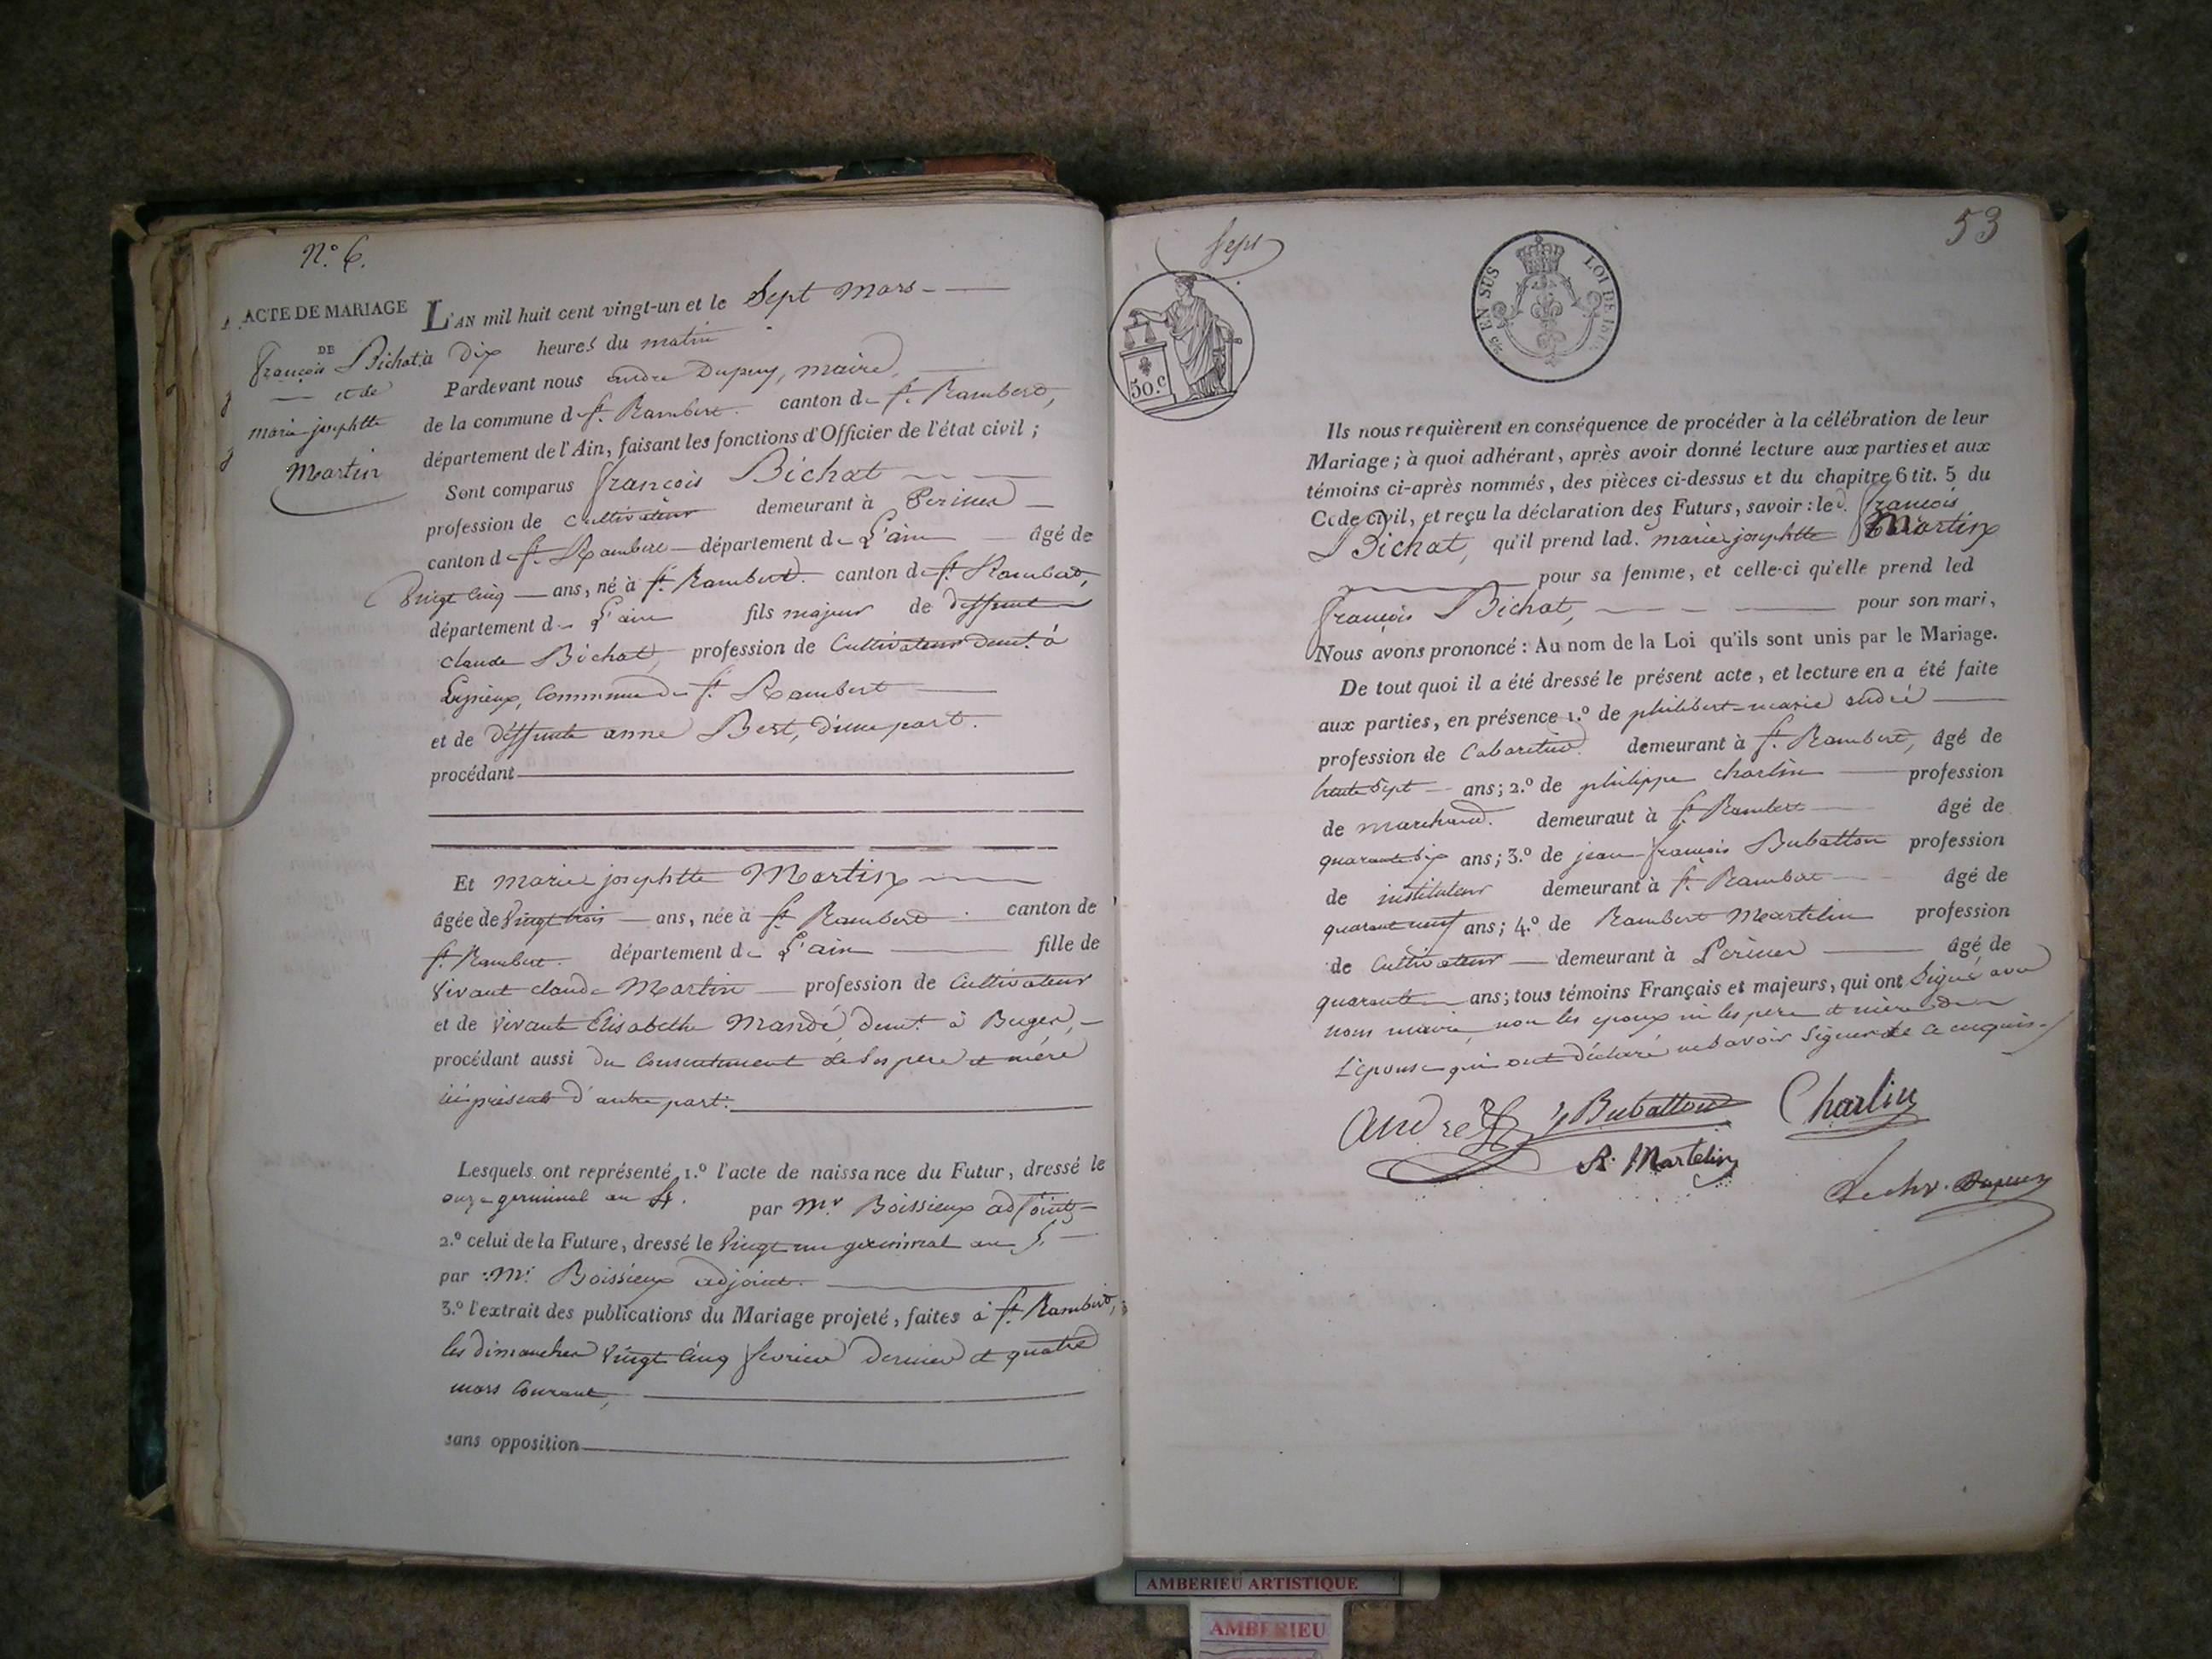 N.° 6.
ACTE DE MARIAGE
DE
françois Bichat
et de
marie josephtte
Martin
L'AN mil huit cent vingt-un et le Sept Mars
à Dix heures du matin
Pardevant nous andré Dupuy, maire,
de la commune de St. Rambert. canton de St. Rambert,
département de l'Ain, faisant les fonctions d'Officier de l'état civil ;
Sont comparus françois Bichat
profession de Cultivateur demeurant à
canton de St. Rambert département de L'ain âgé de
Vingt Cinq ans, né à St. Rambert. canton de St. Rambert,
département de L'ain fils majeur de deffunt
claude Bichat, profession de Cultivateur demt. à
commune de St. Rambert
et de deffunte anne Bert, d'une part.
procédant
Et marie josephtte Martin
âgée de Vingt trois ans, née à St. Rambert. canton de
St. Rambert. département de L'ain fille de
Vivant claude Martin profession de Cultivateur
et de Vivante Elisabethe Mandé, demt. à Buges,
procédant aussi du Consentement de Ses père et mère
ici présents d'autre part.
Lesquels ont représenté, 1.° l'acte de naissance du Futur, dressé le
onze germinal an 4. par Mr. Boissieux adjoint
2.° celui de la Future, dressé le Vingt un germinal an
par Mr. Boissieux adjoint.
3.° l'extrait des publications du Mariage projeté, faites à St. Rambert,
les dimanches Vingt Cinq fevrier dernier et quatre
mars Courant,
sans opposition
Sept
50.c
25 EN SUS
LOI DE
53
Ils nous requièrent en conséquence de procéder à la célébration de leur
Mariage ; à quoi adhérant, après avoir donné lecture aux parties et aux
témoins ci-après nommés, des pièces ci-dessus et du chapitre 6 tit. 5 du
Code civil, et reçu la déclaration des Futurs, savoir : led. françois
Bichat, qu'il prend lad. marie josephtte Martin
pour sa femme, et celle-ci qu'elle prend led
françois Bichat, pour son mari,
Nous avons prononcé : Au nom de la Loi qu'ils sont unis par le Mariage.
De tout quoi il a été dressé le présent acte, et lecture en a été faite
aux parties, en présence 1.° de philibert-marie andré
profession de Cabaretier. demeurant à St. Rambert, âgé de
trente Sept ans ; 2.° de philippe charlin profession
de marchand. demeuraut à St. Rambert âgé de
quarante Six ans ; 3.° de jean françois Bubatton profession
de instituteur demeurant à St. Rambert âgé de
quarante neuf ans ; 4.° de Rambert Martelin profession
de Cultivateur demeurant à âgé de
quarante ans ; tous témoins Français et majeurs, qui ont Signé avec
nous maire, non les epoux ni les père et mère de
L'épouse qui ont déclaré ne Savoir Signer de ce enquis.
André Bubatton Charlin
R. Martelin
Le chv. Dupuy
AMBERIEU ARTISTIQUE
AMBERIEU